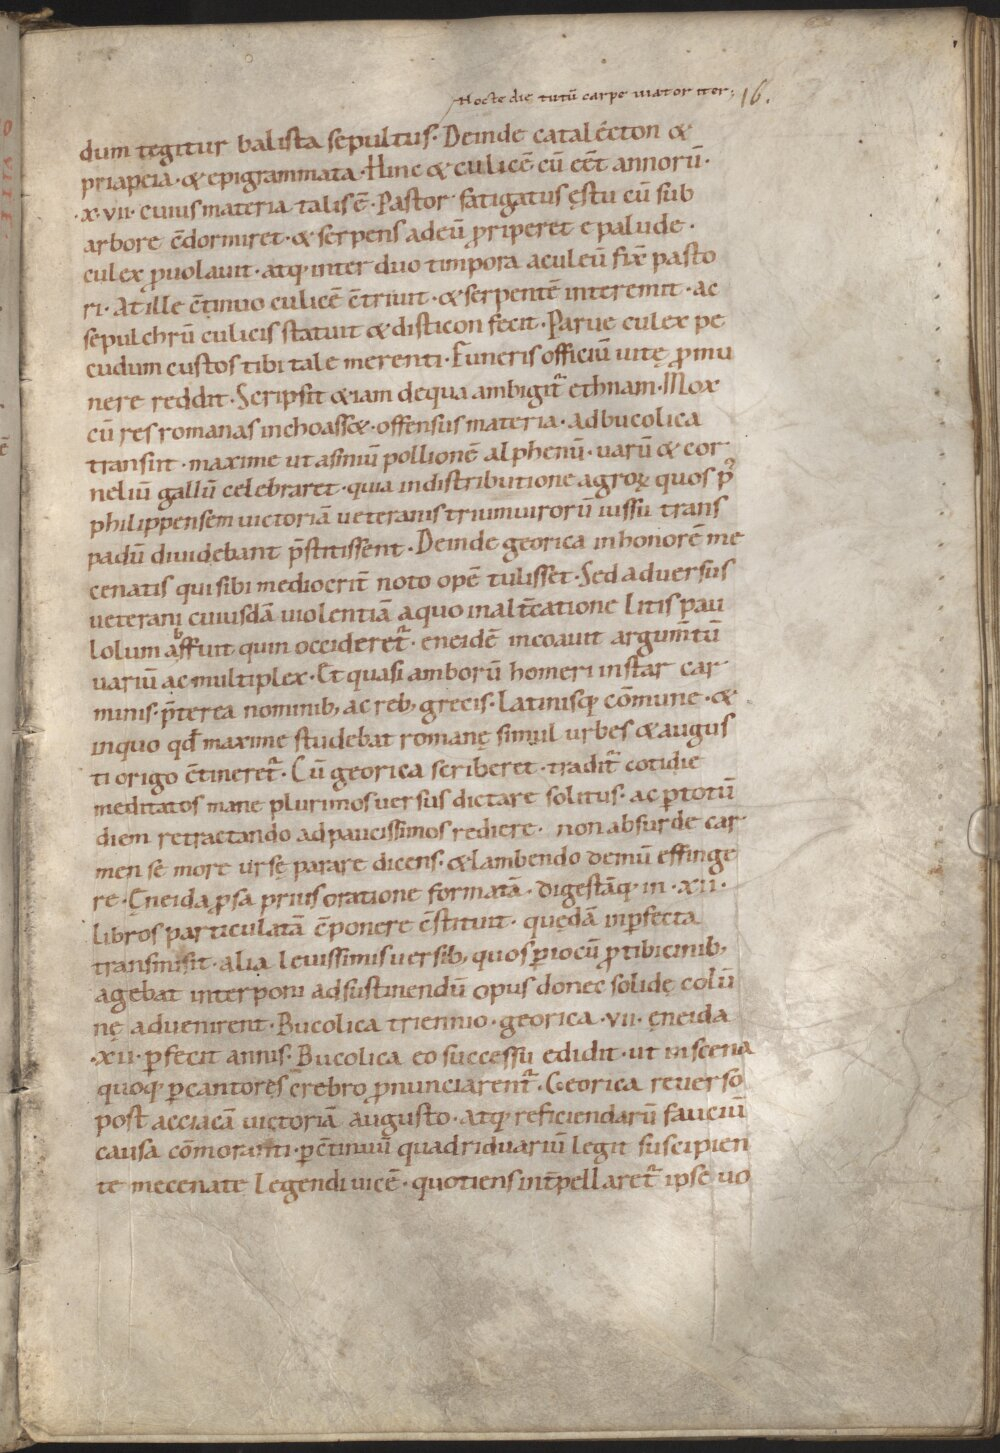 Nocte die tutū carpe uiator iter; 16.
dum tegitur balista sepultus· Deinde catalecton &
priapeia· & epigrammata· Hinc & culicē cū eēt annorū·
·x·vii· cuius materia talis ē· Pastor fatigatus ęstu cū sub
arbore c̄dormiret· & serpens ad eū p̄riperet e palude·
culex p̄uolauit· atq; inter duo timpora aculeū fix̄ pasto
ri· At ille c̄tinuo culicē c̄triuit· & serpentē interemit· ac
sepulchrū culicis statuit & disticon fecit· Parue culex pe
cudum custos tibi tale merenti· Funeris officiū uitę p̄ mu
nere reddit· Scripsit &iam de qua ambigit̄ ethnam· Mox
cū res romanas inchoass&· offensus materia· ad bucolica
transiit· maxime ut asiniū pollionē alphenū· uarū & cor
neliū gallū celebraret· quia in distributione agroꝝ quos p̄
philippensem uictoriā ueteranis triumuirorū iussu trans
padū diuidebant p̄stitissent· Deinde georica in honorē me
cenatis qui sibi mediocrit̄ noto opē tulisset· Sed aduersus
ueterani cuiusdā uiolentiā a quo in alt̄catione litis pau
lolum abffuit quin occideret̄· eneidē incoauit argum̄tū
uariū ac multiplex· Et quasi amborū homeri instar car
minis· p̄terea nominib; ac reb; grecis· Latinisq; cōmune· &
in quo qd̄ maxime studebat romanę simul urbes & augus
ti origo c̄tineret̄· Cū georica scriberet· tradit̄ cotidie
meditatos mane plurimos uersus dictare solitus· ac p̄ totū
diem retractando ad paucissimos rediere· non absurde car
men se more ursę parare dicens· & lambendo demū effinge
re· Ęneida p̄sa prius oratione formatā· digestāq; in ·xii·
libros particulatā c̄ponere c̄stituit· quędā inp̄fecta
transmisit· alia leuissimis uersib; quos p̄ iocū p̄ tibicinib;
agebat interponi ad sustinendū opus donec solidę colū
nę aduenirent· Bucolica triennio· georica ·vii· ęneida
·xii· p̄fecit annis· Bucolica eo successu edidit· ut in scena
quoq; p̄ cantores crebro p̄nunciarent̄· Georica reuerso
post acciacā uictoriā augusto· atq; reficiendarū fauciū
causa cōmoranti· p̄ c̄tinuū quadriduariū legit suscipien
te mecenate legendi uicē· quotiens int̄pellaret̄ ipse uo